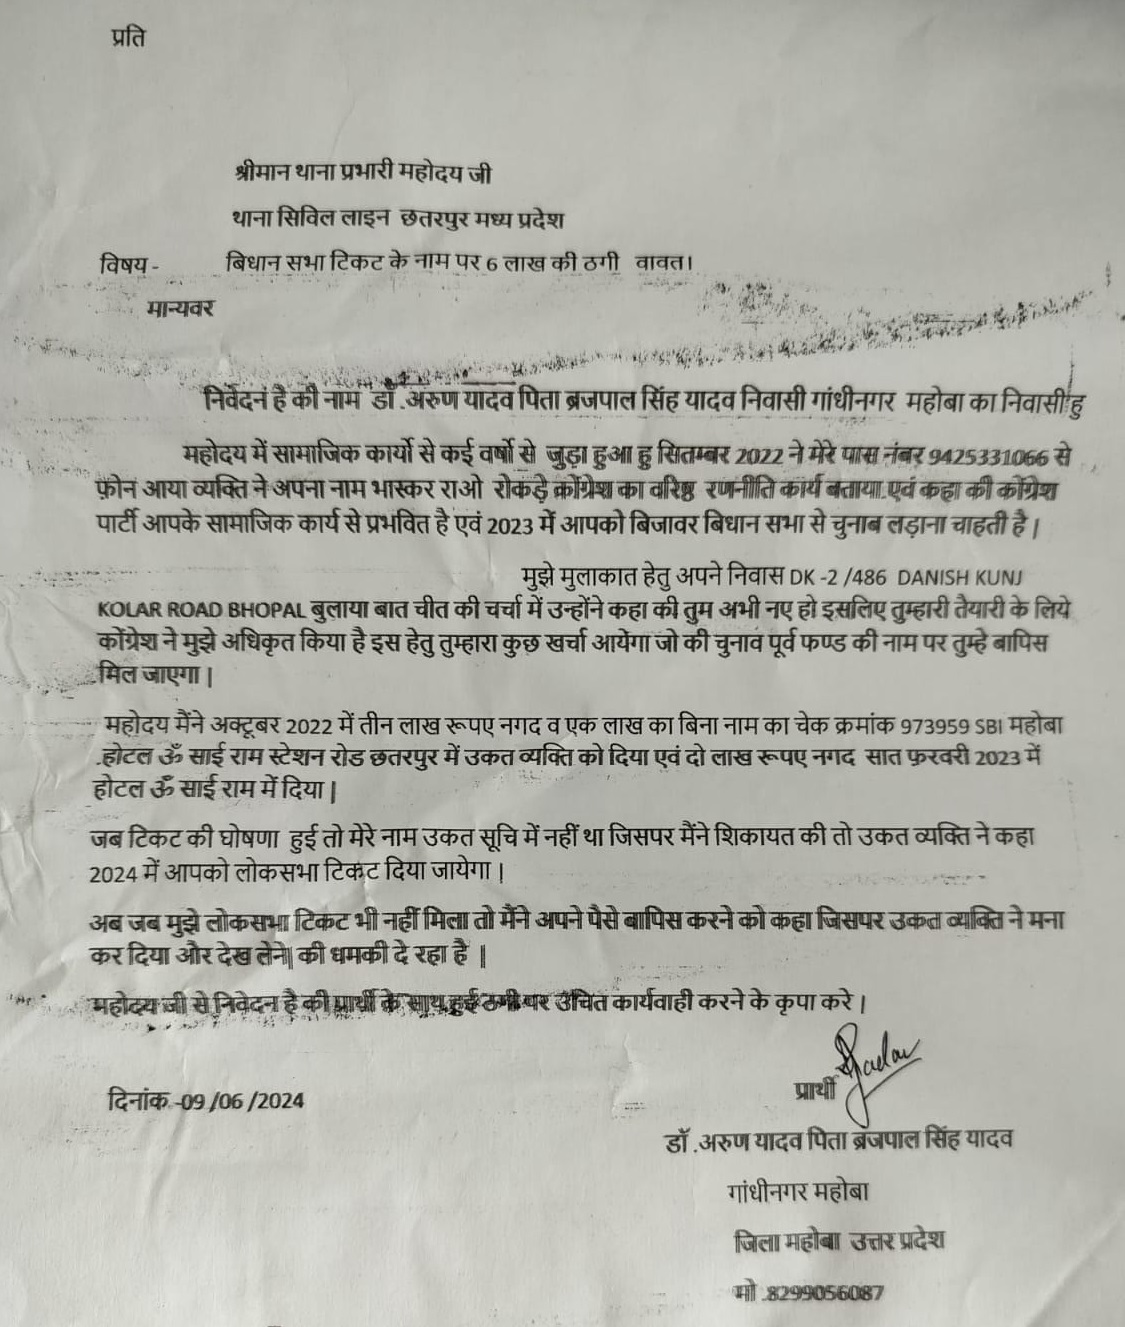 प्रति
श्रीमान थाना प्रभारी महोदय जी
थाना सिविल लाइन छतरपुर मध्य प्रदेश
विषय - बिधान सभा टिकट के नाम पर 6 लाख की ठगी वावत।
मान्यवर
निवेदनं है की नाम डॉ .अरुण यादव पिता ब्रजपाल सिंह यादव निवासी गांधीनगर महोबा का निवासी हु
महोदय में सामाजिक कार्यो से कई वर्षो से जुड़ा हुआ हु सितम्बर 2022 ने मेरे पास नंबर 9425331066 से
फ़ोन आया व्यक्ति ने अपना नाम भास्कर राओ रोकड़े कोंग्रेश का वरिष्ठ रणनीति कार्य बताया एवं कहा की कोंग्रेश
पार्टी आपके सामाजिक कार्य से प्रभवित है एवं 2023 में आपको बिजावर बिधान सभा से चुनाब लड़ाना चाहती है |
मुझे मुलाकात हेतु अपने निवास DK -2 /486 DANISH KUNJ
KOLAR ROAD BHOPAL बुलाया बात चीत की चर्चा में उन्होंने कहा की तुम अभी नए हो इसलिए तुम्हारी तैयारी के लिये
कोंग्रेश ने मुझे अधिकृत किया है इस हेतु तुम्हारा कुछ खर्चा आयेंगा जो की चुनाव पूर्व फण्ड की नाम पर तुम्हे बापिस
मिल जाएगा |
महोदय मैंने अक्टूबर 2022 में तीन लाख रूपए नगद व एक लाख का बिना नाम का चेक क्रमांक 973959 SBI महोबा
.होटल ॐ साई राम स्टेशन रोड छतरपुर में उकत व्यक्ति को दिया एवं दो लाख रूपए नगद सात फ़रवरी 2023 में
होटल ॐ साई राम में दिया |
जब टिकट की घोषणा हुई तो मेरे नाम उकत सूचि में नहीं था जिसपर मैंने शिकायत की तो उकत व्यक्ति ने कहा
2024 में आपको लोकसभा टिकट दिया जायेगा |
अब जब मुझे लोकसभा टिकट भी नहीं मिला तो मैंने अपने पैसे बापिस करने को कहा जिसपर उकत व्यक्ति ने मना
कर दिया और देख लेने| की धमकी दे रहा है |
महोदय जी से निवेदन है की प्रार्थी के साथ हुई ठगी पर उचित कार्यवाही करने के कृपा करे |
दिनांक -09 /06 /2024
प्रार्थी
डॉ .अरुण यादव पिता ब्रजपाल सिंह यादव
गांधीनगर महोबा
जिला महोबा उत्तर प्रदेश
मो .8299056087